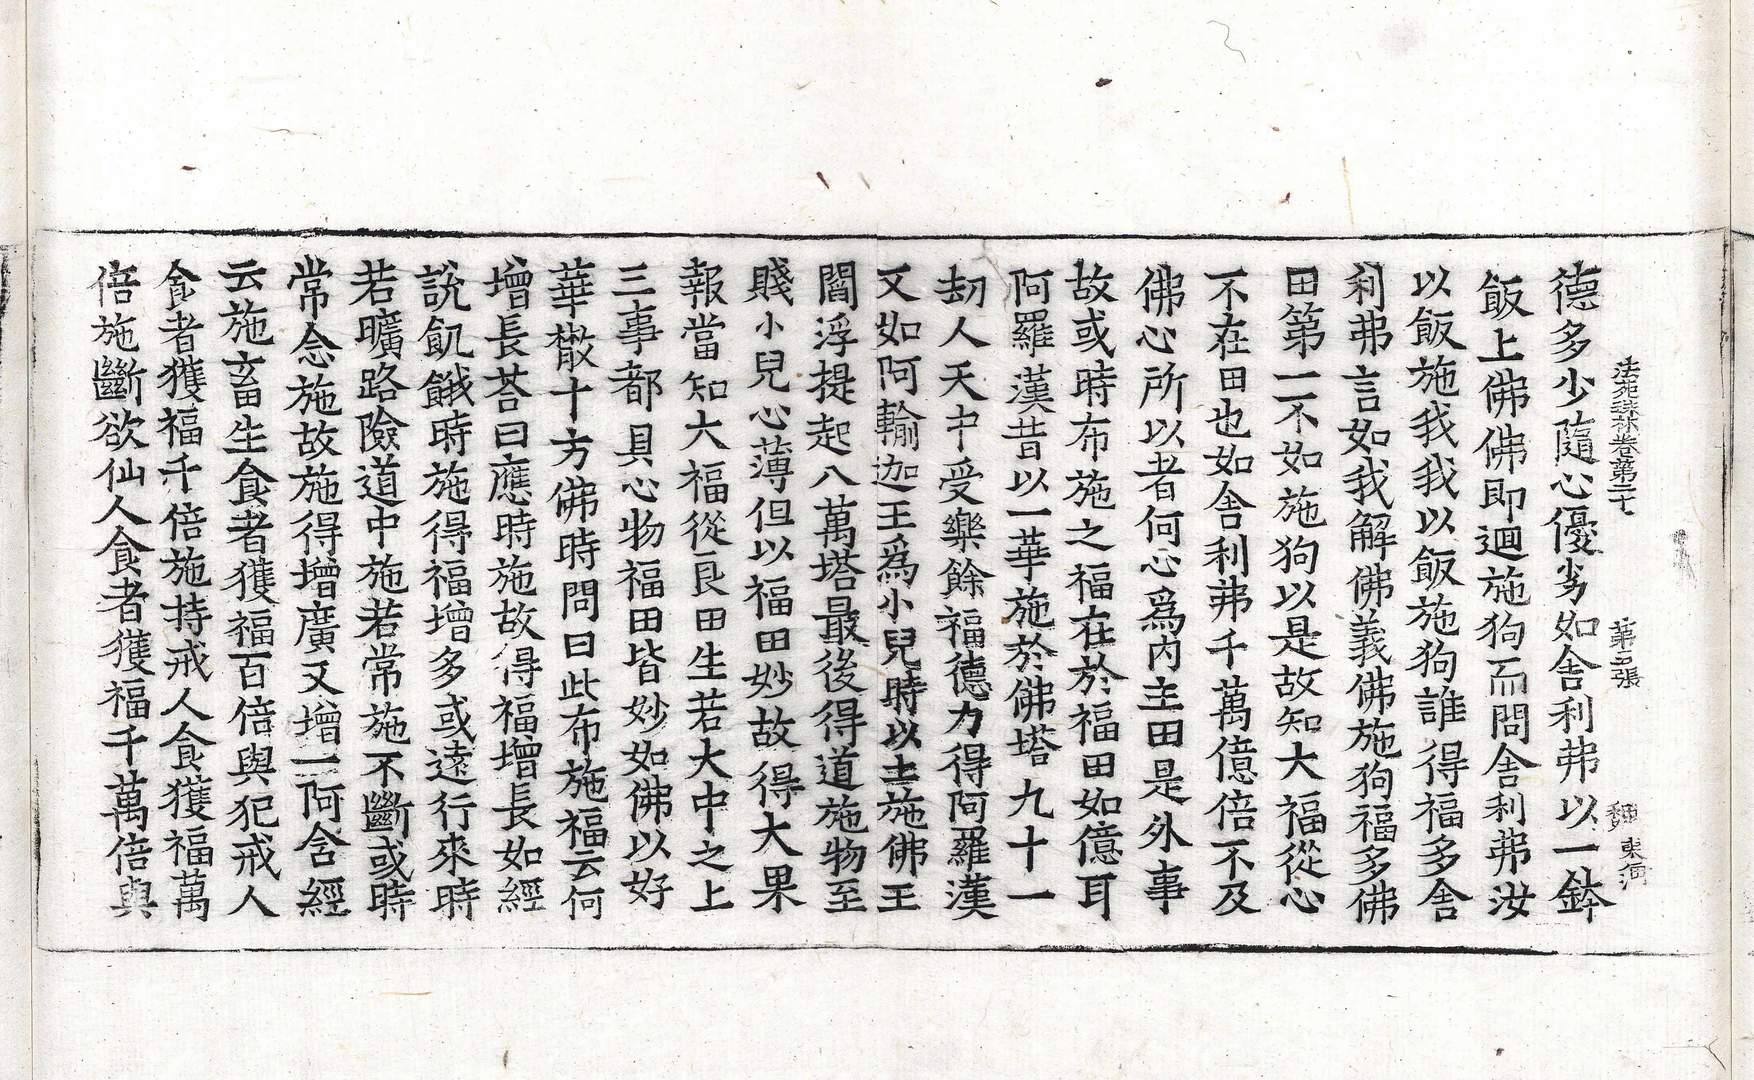 法苑珠林卷第二十 第五張 東河
德多少隨心優劣如舍利弗以一鉢
飯上佛佛即迴施狗而問舍利弗汝
以飯施我我以飯施狗誰得福多舍
利弗言如我解佛義佛施狗福多佛
田第一不如施狗以是故知大福從心
不在田也如舍利弗千萬億倍不及
佛心所以者何心為內主田是外事
故或時布施之福在於福田如億耳
阿羅漢昔以一華施於佛塔九十一
劫人天中受樂餘福德力得阿羅漢
又如阿輸迦王為小兒時以土施佛王
閻浮提起八萬塔最後得道施物至
賤小兒心薄但以福田妙故得大果
報當知大福從良田生若大中之上
三事都具心物福田皆妙如佛以好
華㪚十方佛時問曰此布施福云何
增長荅曰應時施故得福增長如經
說飢餓時施得福增多或遠行來時
若曠路險道中施若常施不斷或時
常念施故施得增廣又增一阿含經
云施畜生食者獲福百倍與犯戒人
食者獲福千倍施持戒人食獲福萬
倍施斷欲仙人食者獲福千萬倍與